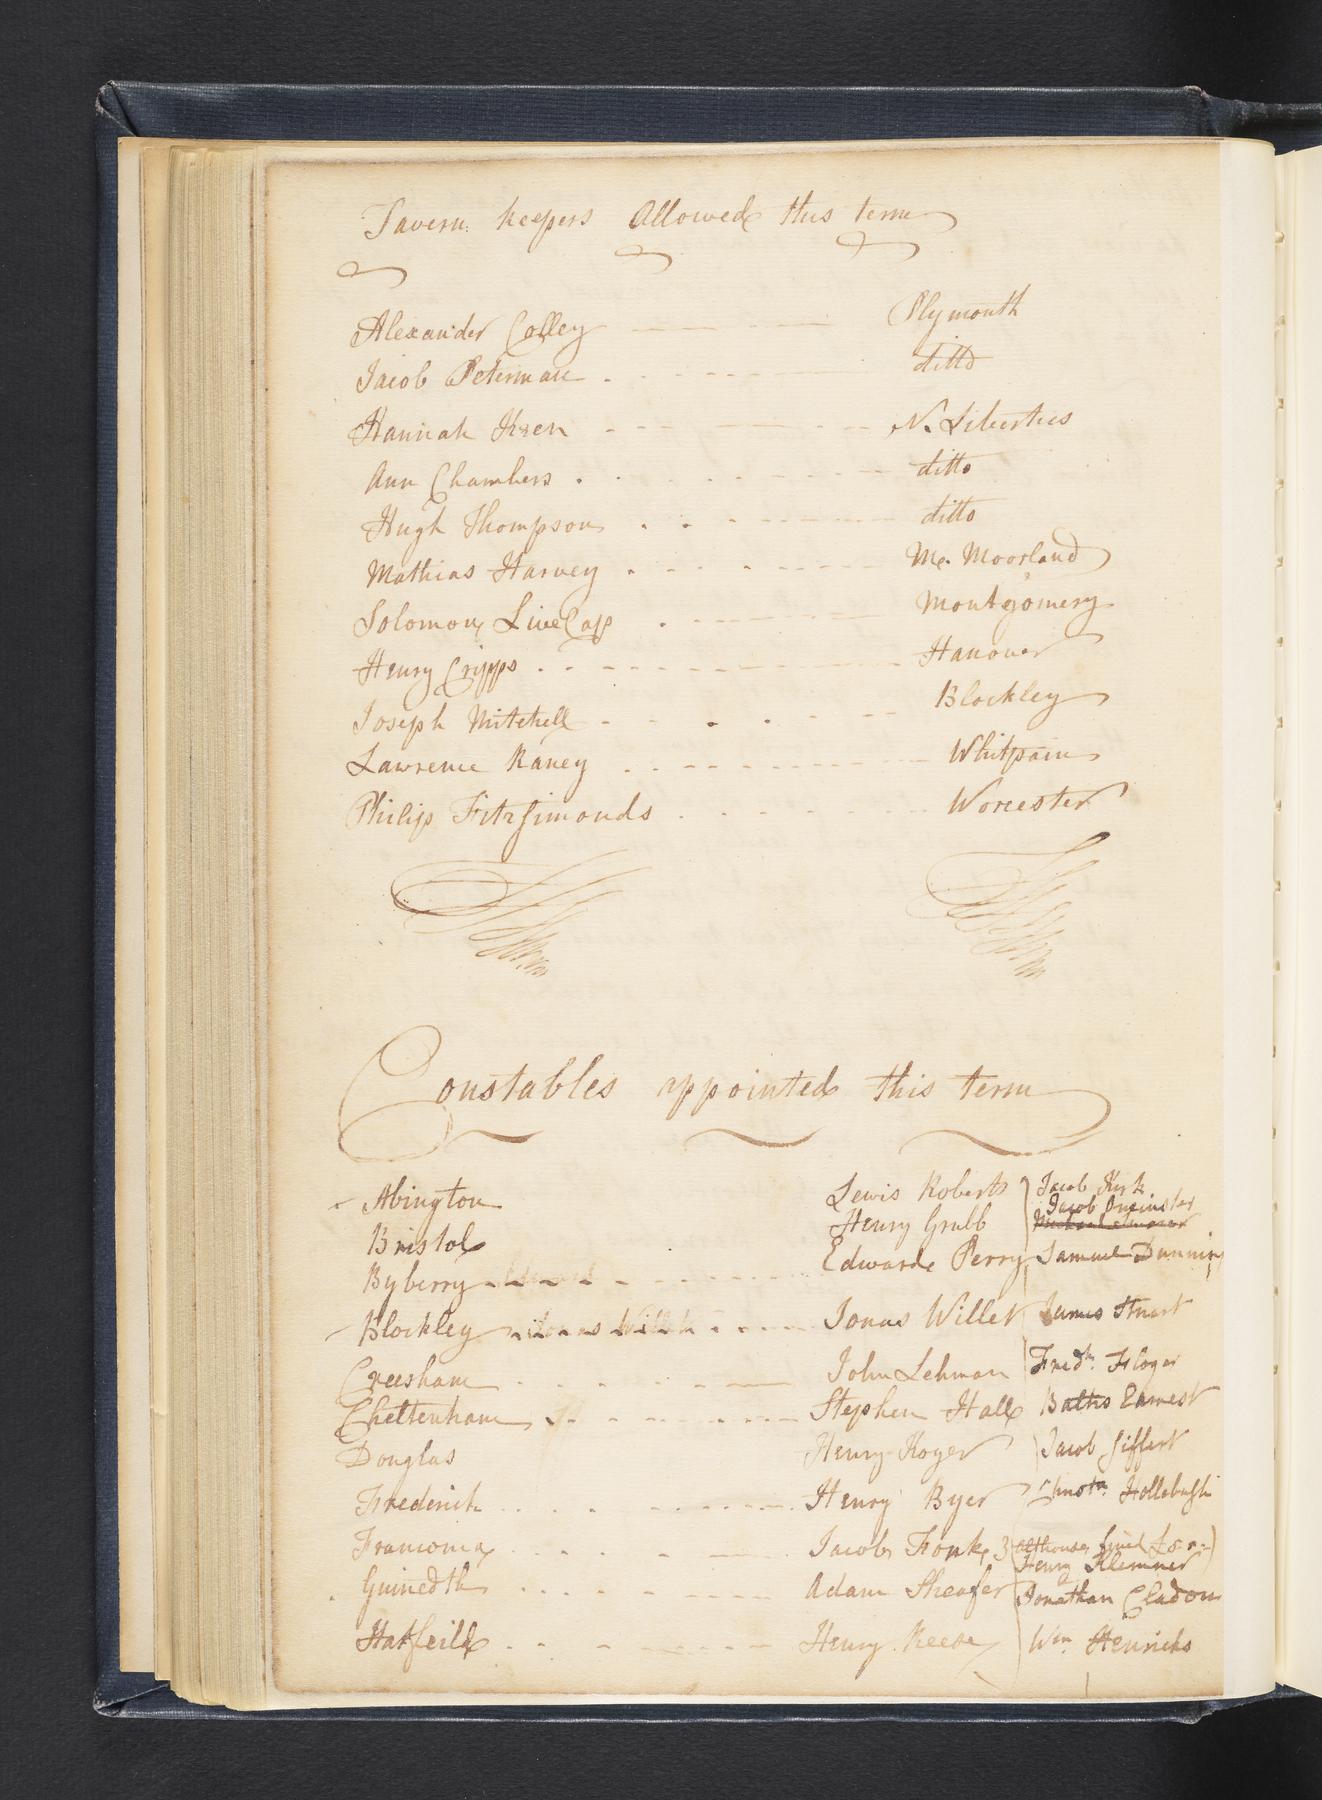 Tavern keepers Allowed this term
Alexander Colley Plymouth
Jacob Peterman ditto
Hannah N. Liberties
Ann Chambers ditto
Hugh Thompson ditto
Mathias Harvey Mr. Moorland
Solomon LiveCap Montgomery
Henry Cripps Hanover
Joseph Mitchell Blockley
Lawrence Raney Whitpain
Philip Fitzsimonds Worcester
Constables appointed this term
Abington Lewis Roberts Jacob Kirk
Bristol Henry Grubb Jacob
Byberry Edward Perry Samuel Dunning
Blockley Jonas Willet James Stuart
Creesham John Lehman Fredk.
Cheltenham Stephen Hall Baltis Earnest
Douglas Henry Koyer Jacob Siffert
Frederick Henry Byer
Franconia Jacob Fonk
Henry
Guinedth Adam Sheafer Jonathan Cladon
Hatfeild Henry Reese Wm. Henricks